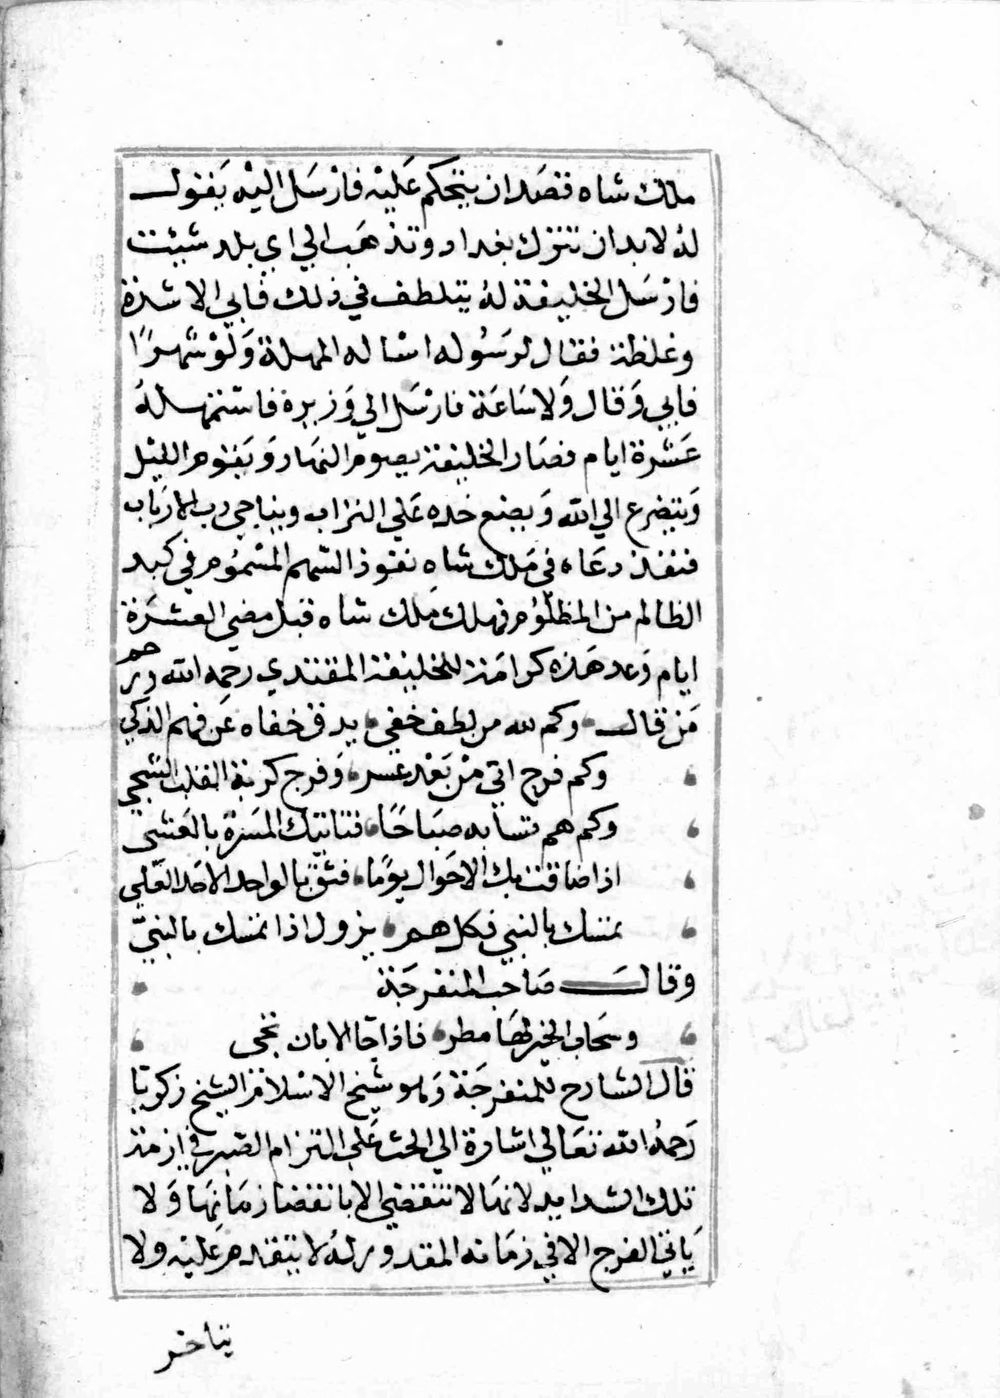 ملك شاه فقصد ان يتحكم عليه فارسل اليه يقول
له لا بد ان تترك بغداد وتذهب الي اي بلد شيئت
فارسل الخليفة له يتلطف في ذلك فابي الا شدة
وغلظة فقال لرسوله اساله المهلة ولو شهرًا
فابي وقال ولا ساعة فارسل الي وزيره فاستمهله
عشرة ايام فصار الخليفة يصوم النهار ويقوم الليل
ويتضرع الي الله ويضع خده علي التراب ويناجي رب الارباب
فنفذ دعاه في ملك شاه نفوذ السهم المسموم في كبد
الظالم من المظلوم فهلك ملك شاه قبل مضي العشرة
ايام وعد هذه كرامة للخليفة المقتدي رحمه الله ورحم
من قال وكم لله من لطف خفي يدق خفاه عن فهم الذكي
وكم فرج اتي من بعد عسر وفرج كربة القلب الشجي
وكم هم تسا به صباحًا فتاتيك المسرة بالعشي
اذا ضاقت بك الاحوال يومًا فثق بالواحد الاحد العلي
تمسك بالنبي فكل هم يزول اذا تمسك بالنبيّ
وقال صاحب المنفرجة
وسحاب الخير لها مطر فاذا جا الابان تجي
قال الشارح للمنفرجة وهو شيخ الاسلام الشيخ زكريا
رحمه الله تعالي اشارة الي الحث علي التزام الصبر في ازمنة
تلك الشدايد لانها لا تنقضي الا بانقضا زمانها ولا
ياتي الفرج الا في زمانه المقدور له لا يتقدم عليه ولا
يتاخر